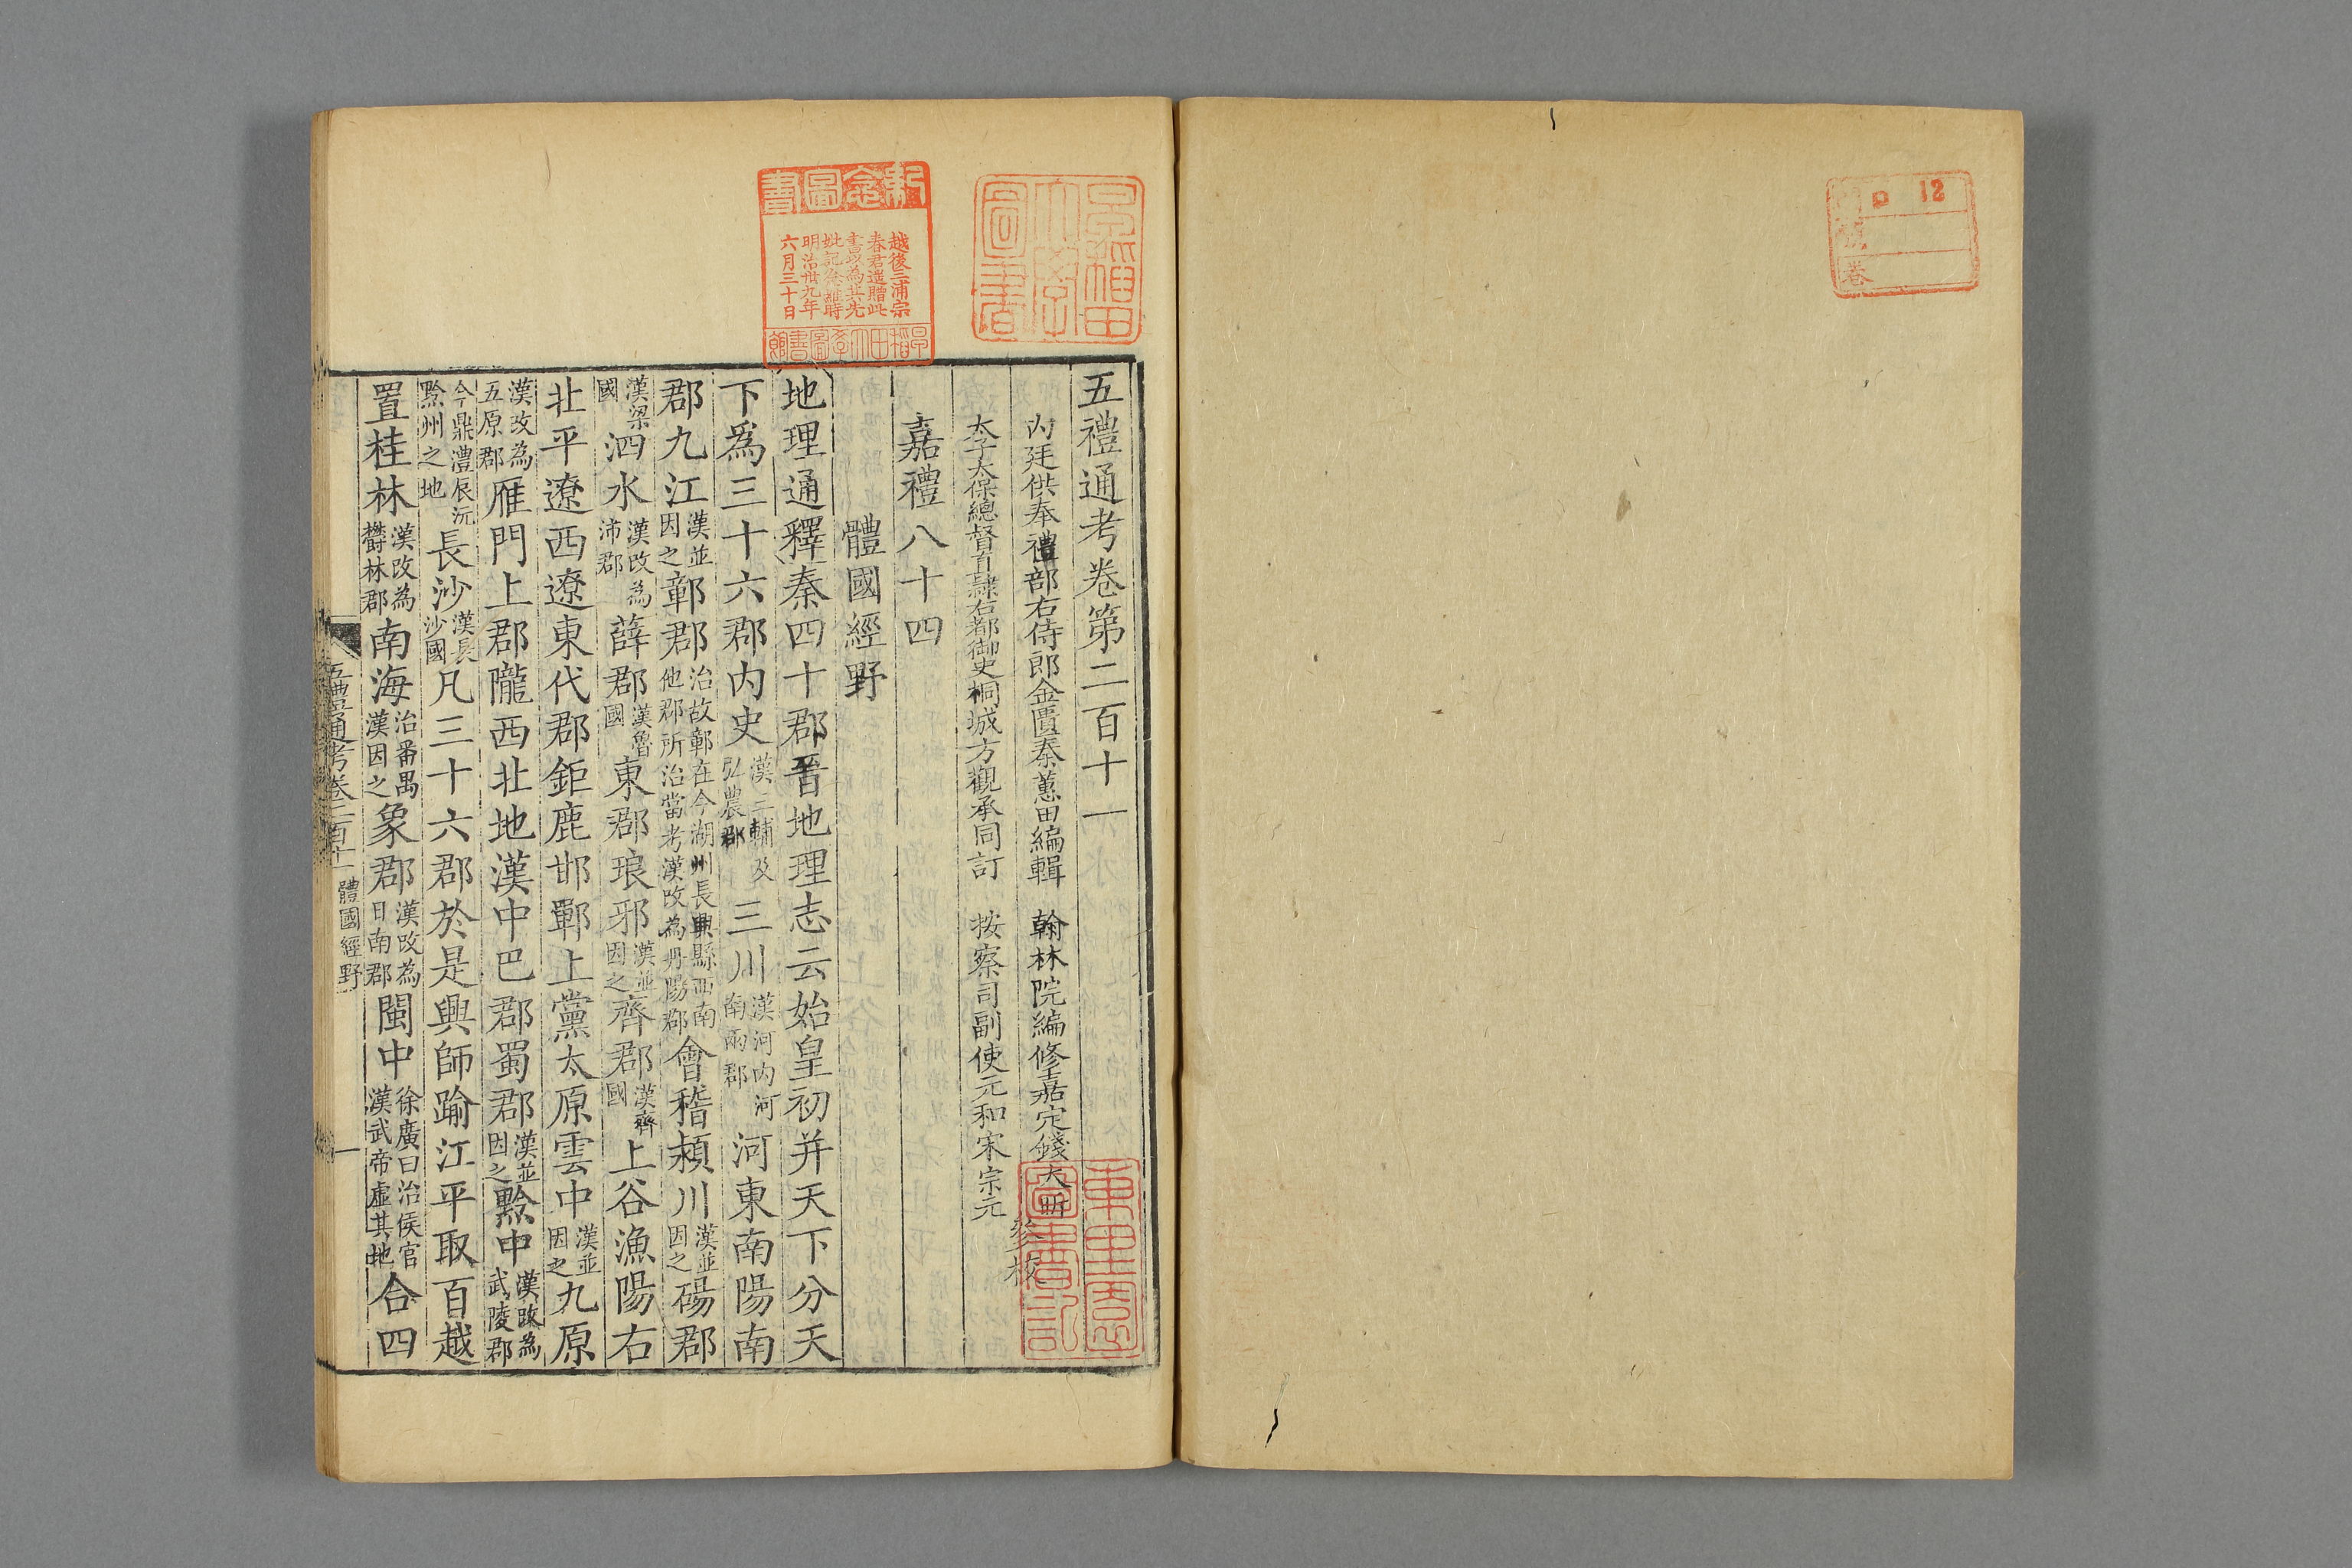 12
卷
早稻田
大學
圖書
紀念圖書
越後三浦宗
春君遺贈此
書以為其先
妣記念維時
明治卅九年
六月三十日
早稻田大學圖書館
五禮通考卷第二百十一
内廷供奉禮部右侍郎金匱秦蕙田編輯　翰林院編修嘉定錢大昕
太子太保總督直隸右都御史桐城方觀承同訂　按察司副使元和宋宗元
參校
東里園
圖書記
嘉禮八十四
體國經野
地理通釋秦四十郡晉地理志云始皇初并天下分天
下爲三十六郡内史漢三輔及弘農郡三川漢河内河南兩郡河東南陽南
郡九江漢並因之鄣郡治故鄣在今湖州長興縣西南他郡所治當考漢改為丹陽郡會稽潁川漢並因之碭郡
漢梁國泗水漢改為沛郡薛郡漢魯國東郡琅邪漢並因之齊郡漢齊國上谷漁陽右
北平遼西遼東代郡鉅鹿邯鄲上黨太原雲中漢並因之九原
漢改為五原郡雁門上郡隴西北地漢中巴郡蜀郡漢並因之黔中漢改為武陵郡
今鼎澧辰沅黔州之地長沙漢長沙國凡三十六郡於是興師踰江平取百越
置桂林漢改為欝林郡南海治番禺漢因之象郡漢改為日南郡閩中徐廣曰治侯官漢武帝虛其地合四
五禮通考卷二百十一　體國經野　一